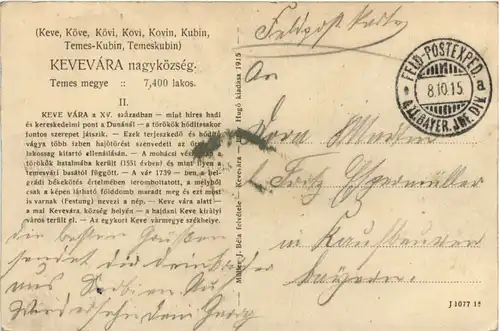 (Keve, Köve, Kövi, Kovi, Kovin, Kubin,
Temes-Kubin, Temeskubin)
KEVEVÁRA nagyközség.
Temes megye :: 7,400 lakos.
II.
KEVE VÁRA a XV. században — mint hires hadi
és kereskedelmi pont a Dunánál — a törökök hóditásakor
fontos szerepet játszik. — Ezek terjeszkedő és hódító
vágya több izben hajótörést szenvedett az
lakosság kitartó ellenállásán. — A mohácsi vész
törökök hatalmába került (1551 évben) és mint ilyen a
temesvári basától függött. — A vár 1739 — ben a bel-
grádi békekötés értelmében leromboltatott, a melyből
csak a képen látható földdomb maradt meg és ezt most
is varnak (Festung) nevezi a nép. — Keve vára alatt —
a mai Kevevára, község helyén — a hajdani Keve királyi
város terült el. — Az egykori Keve vármegye székhelye.
Müller J. Béla felvétele — Kevevára Hugó kiadása 1915
Feldpostkarte
An
FELD-POSTEXPED.
8.10.15
a
BAYER. INF. DIV.
Fritz
in Kaufbeuren
Bayern.
Die besten Grüsse
sendet dir
aus Serbien
Wiedersehn dein Georg
J 1077 15